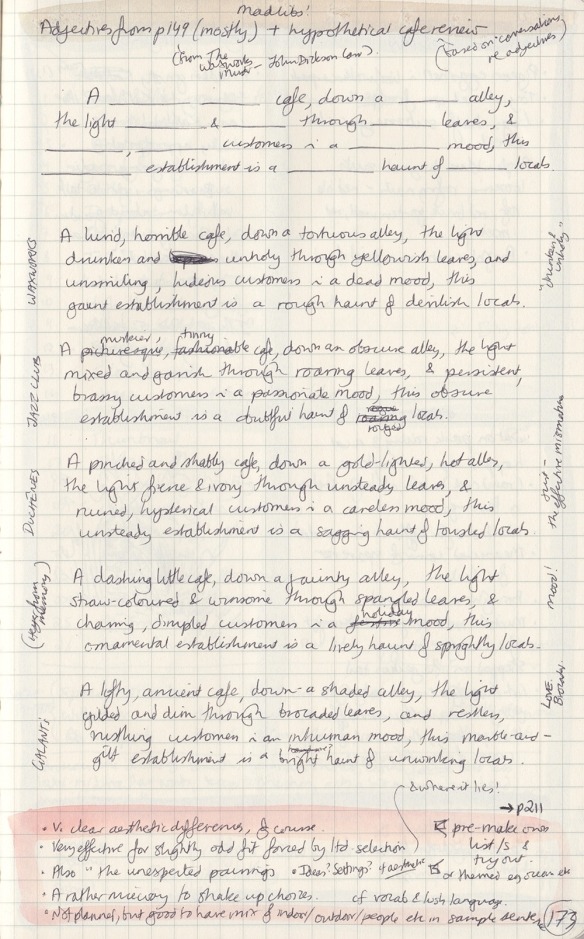 madlibs!
Adjectives from p149 (mostly) + hypothetical cafe review
(from The Waxworks Murder - John Dickson Carr)
(based on conversations re adjectives)
A ____ ____ cafe, down a ____ alley,
the light ____ & ____ through ____ leaves, &
____, ____ customers in a ____ mood, this
____ establishment is a ____ haunt of ____ locals.
WAXWORKS
A lurid, horrible cafe, down a tortuous alley, the light
drunken and unholy through yellowish leaves, and
unsmiling, hideous customers in a dead mood, this
gaunt establishment is a rough haunt of devilish locals.
"drunken & unholy"
JAZZ CLUB
murkier, tinny
A picturesque, fashionable cafe, down an obscure alley, the light
mixed and garish through roaring leaves, & persistent,
brassy customers in a passionate mood, this obscure
establishment is a doubtful haunt of roaring locals.
rouged
DUCHENES
A pinched and shabby cafe, down a gold-lighted, hot alley,
the light fierce & ivory through unsteady leaves, &
ruined, hysterical customers in a careless mood, this
unsteady establishment is a sagging haunt of tousled locals.
just - the effective mismatches
(Heyer, from memory)
A dashing little cafe, down a jaunty alley, the light
straw-coloured & winsome through spangled leaves, &
charming, dimpled customers in a festive mood, this
holiday
ornamental establishment is a lively haunt of sprightly locals.
mood!
GALANT:
A lofty, ancient cafe, down a shaded alley, the light
gilded and dim through brocaded leaves, and restless,
rustling customers in an inhuman mood, this marble-and-
gilt establishment is a bright haunt of unwinking locals.
LOVE: Brocade
& where it lies!
→ p211
• V. clear aesthetic differences, of course.
• Very effective for slightly odd fit forced by ltd. selection
• Also " the unexpected pairings • Ideas? Settings? + aesthetic
• A rather nice way to shake up choices. cf vocab & lush language.
• Not planned, but good to have mix of indoor/outdoor/people etc in sample sentence
pre-make ones
list/s &
try out.
or themed eg ocean etc
173